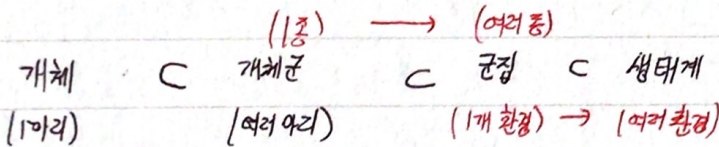 (1종) → (여러 종)
개체 ⊂ 개체군 ⊂ 군집 ⊂ 생태계
(1마리) (여러 마리) (1개 환경) → (여러 환경)